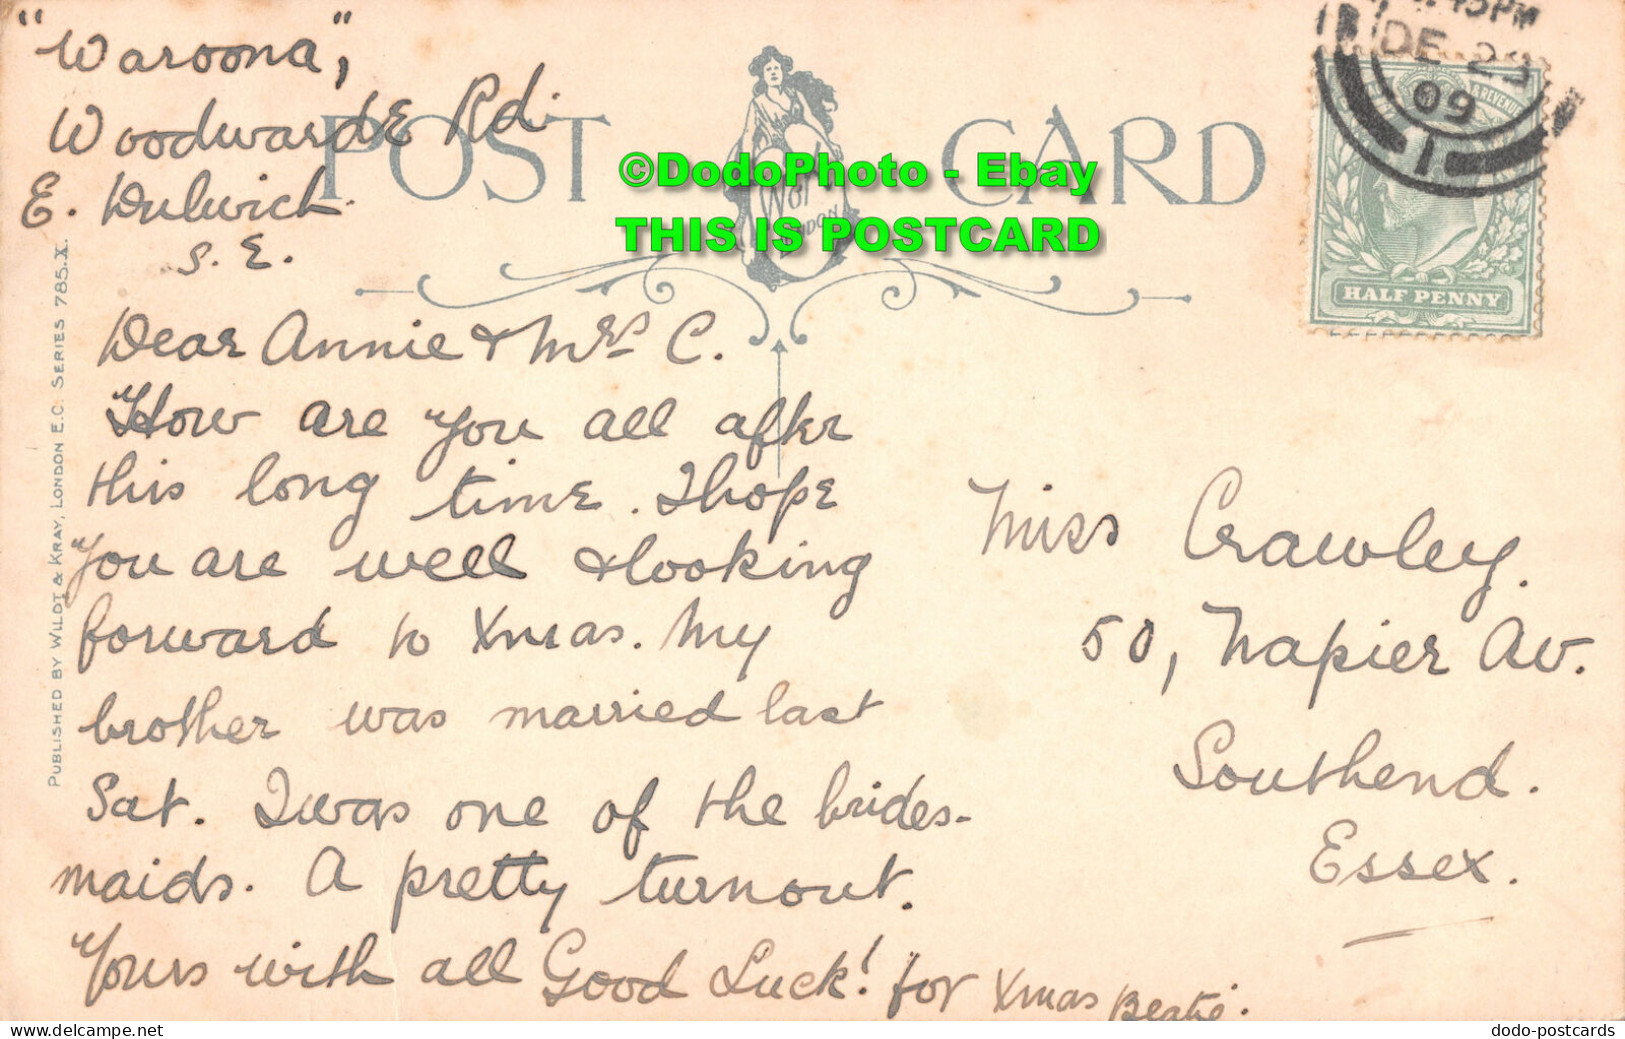 "Waroona",
Woodwarde Rd.
E. Dulwich
S.E.
POST CARD
©DodoPhoto - Ebay
THIS IS POSTCARD
45PM
DE 23
09
1
& REVENUE
HALF PENNY
PUBLISHED BY WILDT & KRAY, LONDON E.C. SERIES 785.X.
Dear Annie & Mrs C.
How are you all after
this long time. I hope
you are well & looking
forward to Xmas. My
brother was married last
Sat. I was one of the brides-
maids. A pretty turnout.
Yours with all Good Luck! for Xmas Beatie.
Miss Crawley.
50, Napier Av.
Southend.
Essex.
www.delcampe.net
dodo-postcards